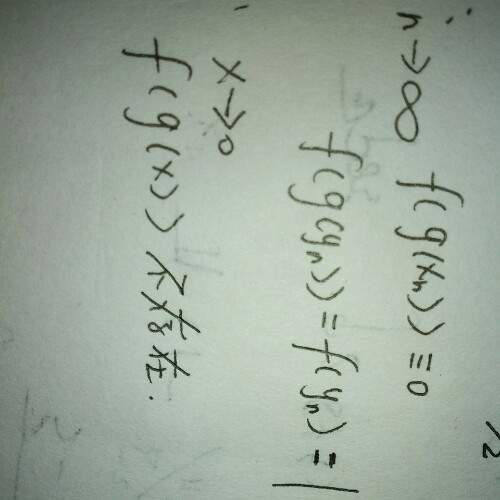 n→∞ f(g(xₙ))=0
f(g(yₙ))=f(yₙ)=1
x→0
f(g(x))不存在.